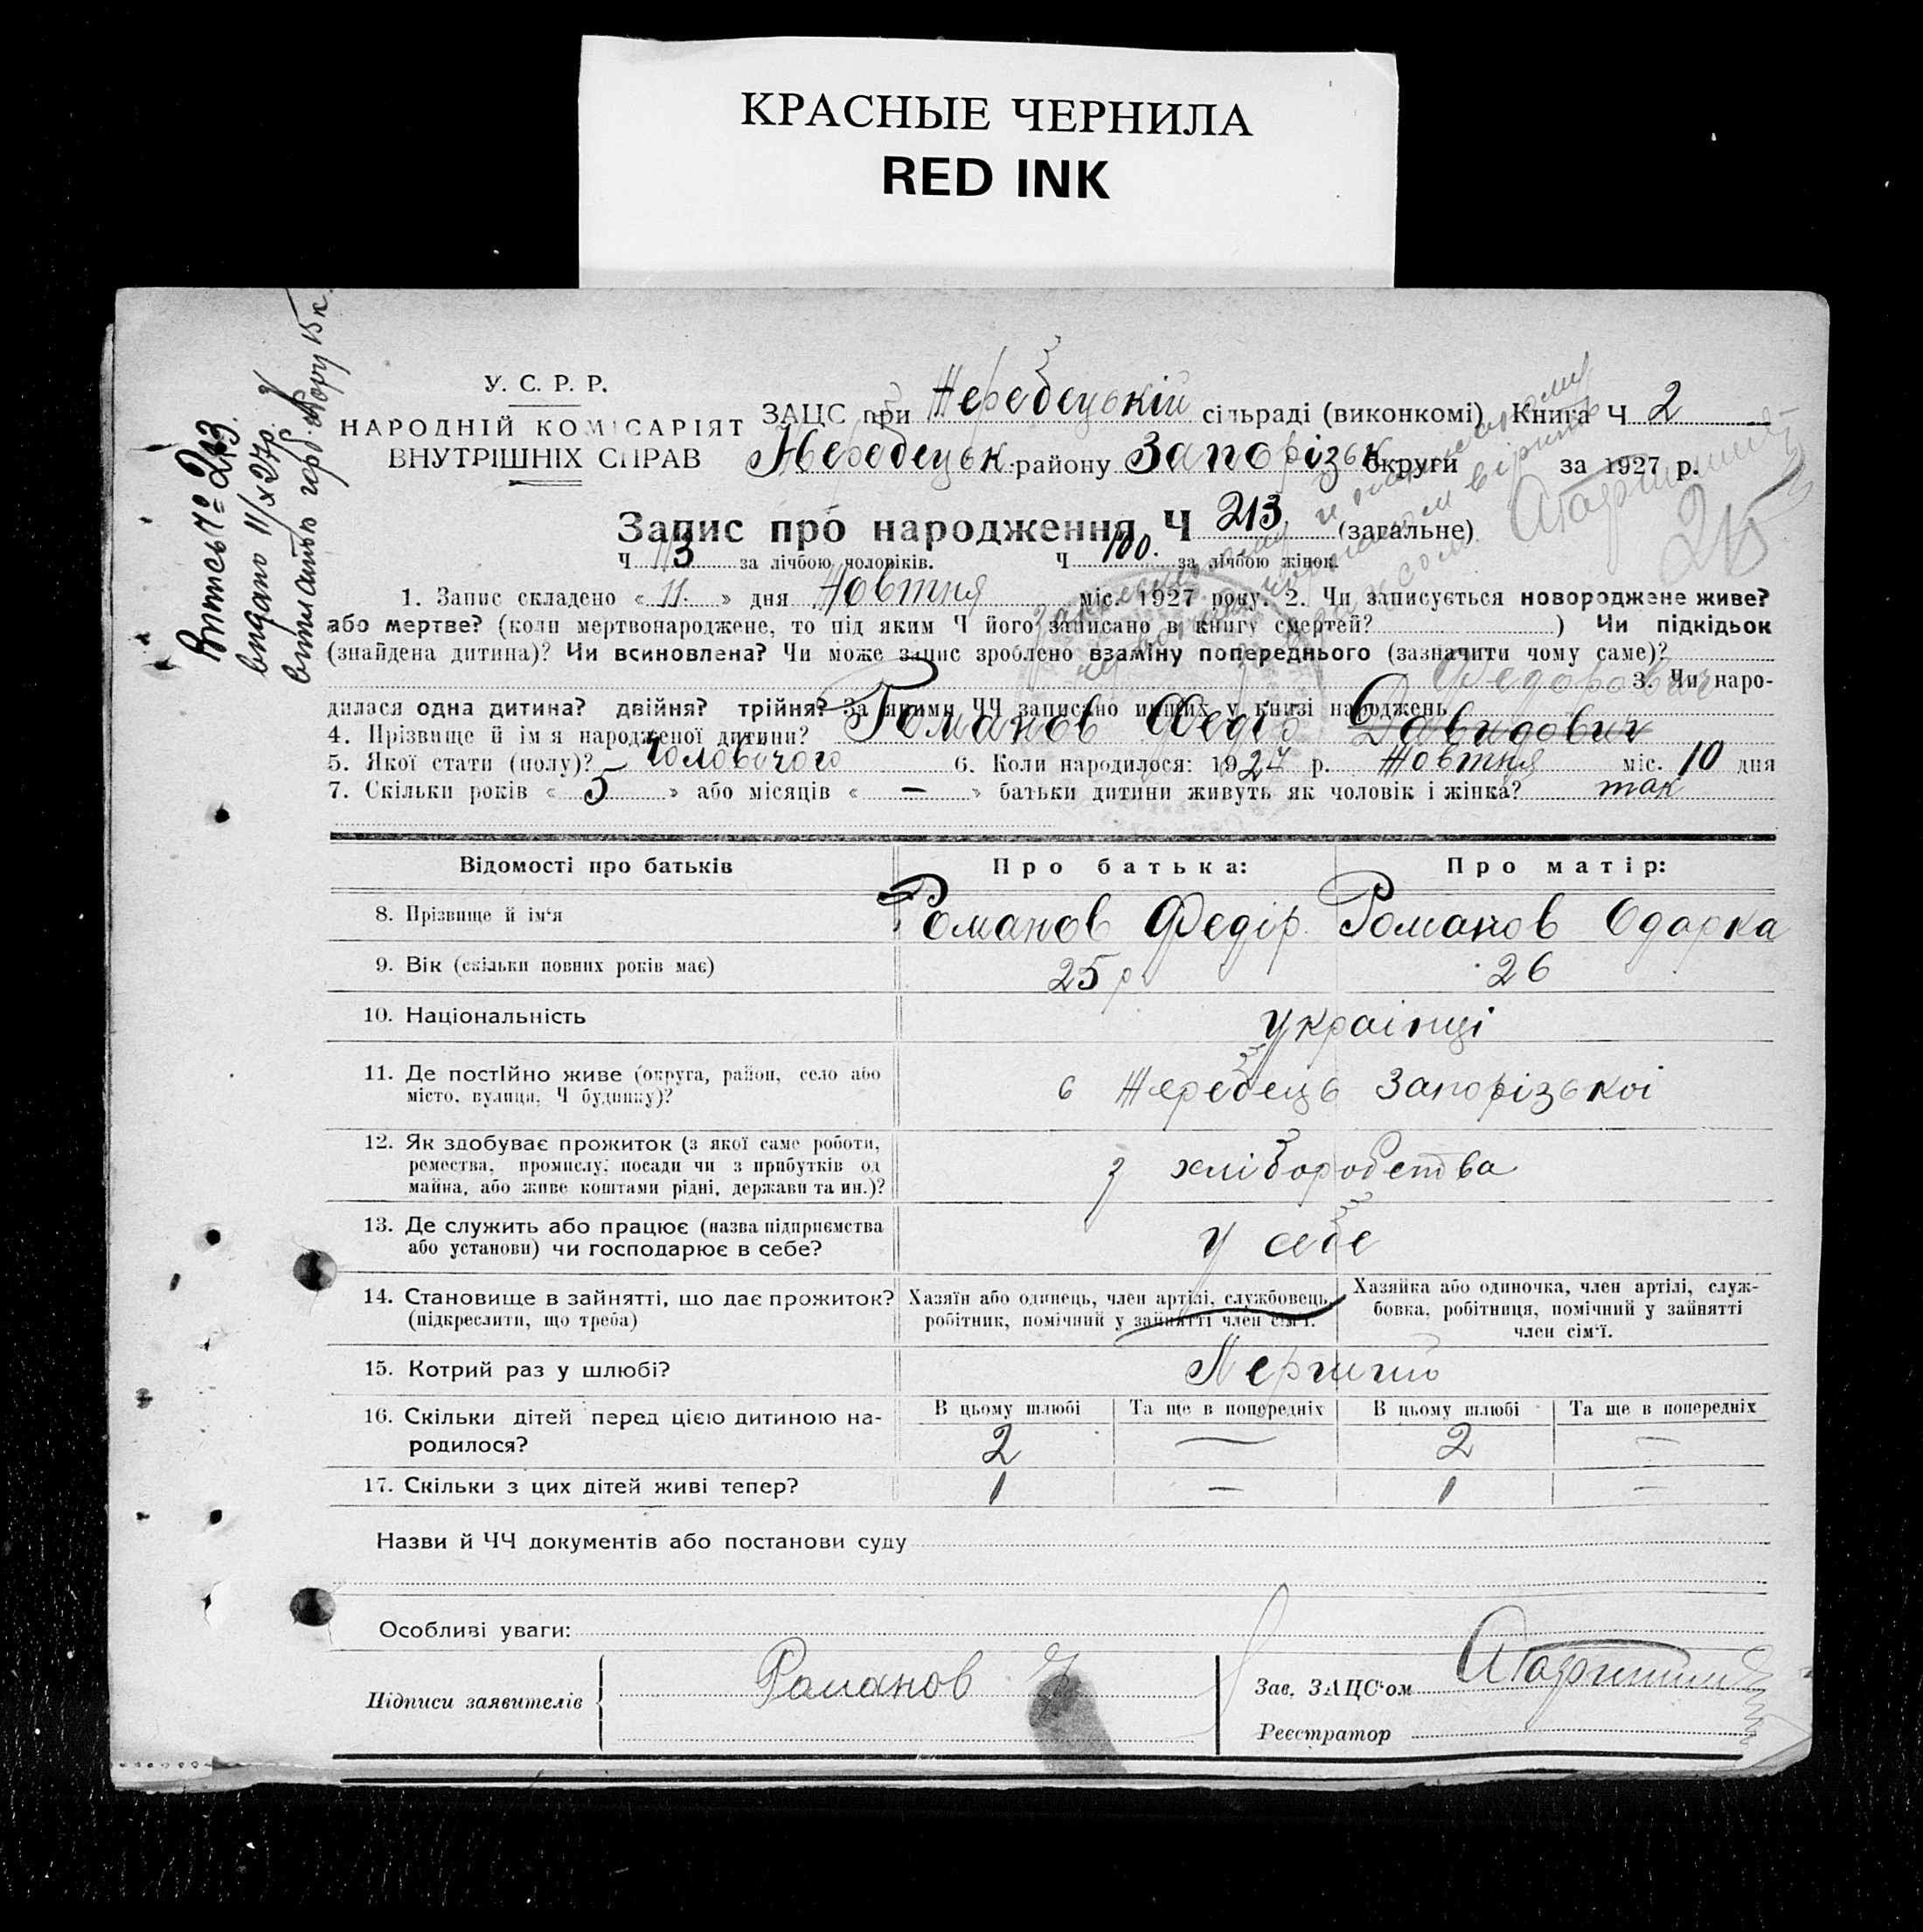 КРАСНЫЕ ЧЕРНИЛА
RED INK
Випись № 213.
видано 11/X 27р.
У. С. Р. Р.
НАРОДНІЙ КОМІСАРІЯТ
ВНУТРІШНІХ СПРАВ
ЗАЦС при Жеребецькій сільраді (виконкомі) Книга Ч 2
Жеребецьк. району Запорізьк округи за 1927 р.
Запис про народження Ч 213 (загальне)
215
Ч 113 за лічбою чоловіків. Ч 100. за лічбою жінок.
1. Запис складено « 11. » дня Жовтня міс. 1927 року. 2. Чи записується новороджене живе?
або мертве? (коли мертвонароджене, то під яким Ч його записано в книгу смертей? ) Чи підкідьок
(знайдена дитина)? Чи всиновлена? Чи може запис зроблено взаміну попереднього (зазначити чому саме)?
Федорович 3. Чи наро-
дилася одна дитина? двійня? трійня? За якими ЧЧ записано инших у книзі народжень
4. Прізвище й ім'я народженої дитини? Романов Федір Давидович
5. Якої стати (полу)? чоловічого 6. Коли народилося: 1927 р. Жовтня міс. 10 дня
7. Скільки років « 5 » або місяців « — » батьки дитини живуть як чоловік і жінка? так
Відомості про батьків Про батька: Про матір:
8. Прізвище й ім'я Романов Федір. Романов Одарка
9. Вік (скільки повних років має) 25 р 26
10. Національність Українці
11. Де постійно живе (округа, район, село або
місто, вулиця, Ч будинку)? с Жеребець Запорізької
12. Як здобуває прожиток (з якої саме роботи,
ремества, промислу, посади чи з прибутків од
майна, або живе коштами рідні, держави та ин.)? з хліборобства
13. Де служить або працює (назва підприємства
або установи) чи господарює в себе? у себе
14. Становище в зайнятті, що дає прожиток?
(підкреслити, що треба)
Хазяїн або одинець, член артілі, службовець,
робітник, помічний у зайнятті член сім'ї.
Хазяйка або одиночка, член артілі, служ-
бовка, робітниця, помічний у зайнятті
член сім'ї.
15. Котрий раз у шлюбі? Перший
16. Скільки дітей перед цією дитиною на-
родилося?
В цьому шлюбі Та ще в попередніх В цьому шлюбі Та ще в попередніх
2 — 2 —
17. Скільки з цих дітей живі тепер? 1 — 1 —
Назви й ЧЧ документів або постанови суду
Особливі уваги:
Підписи заявителів Романов
Зав. ЗАЦС'ом
Реєстратор